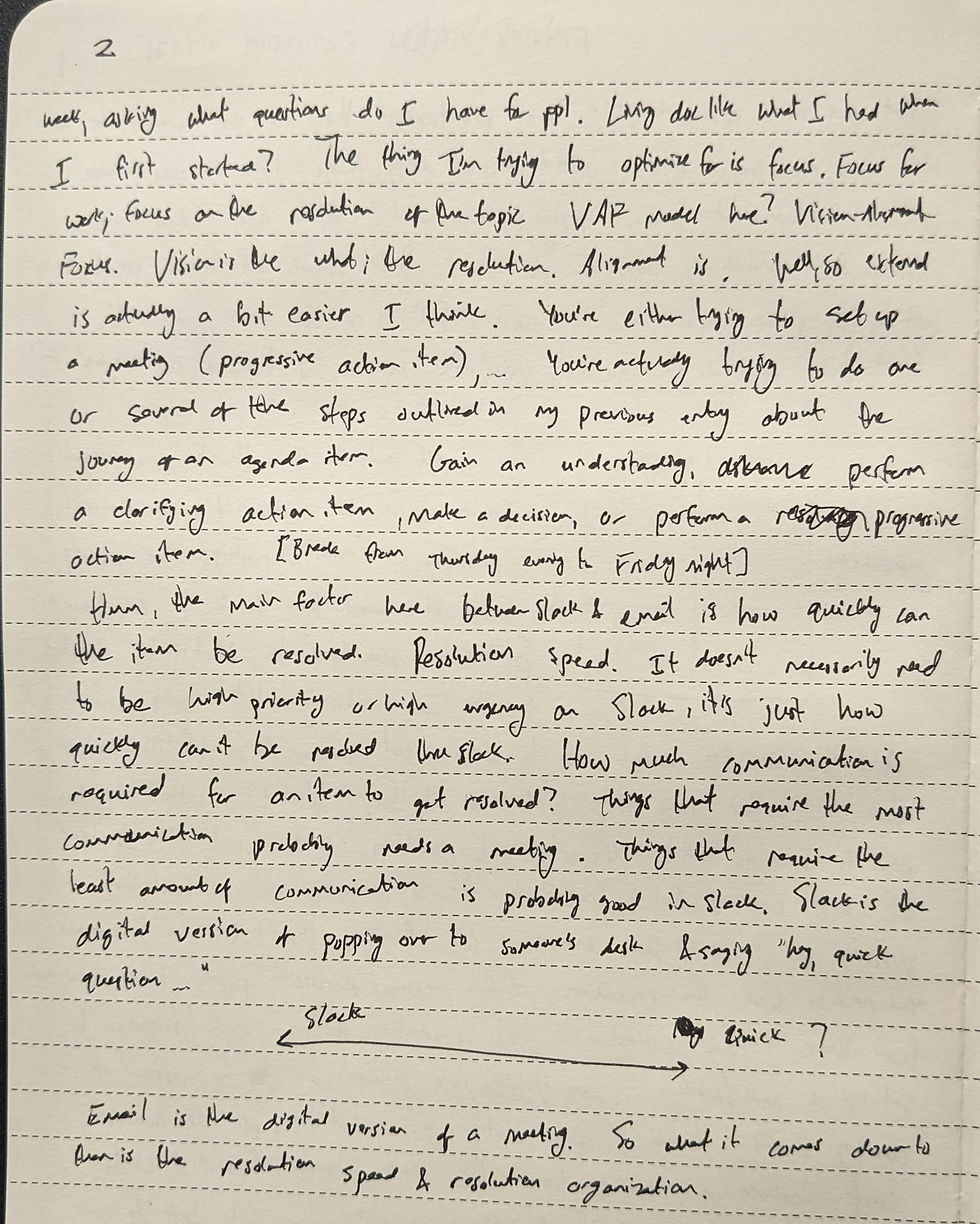 2
week, asking what questions do I have for ppl. Living doc like what I had when
I first started? The thing I'm trying to optimize for is focus. Focus for
work; focus on the resolution of the topic VAF model here? Vision-Alignment
Focus. Vision is the what; the resolution. Alignment is . Well, so external
is actually a bit easier I think. You're either trying to set up
a meeting (progressive action item), ... You're actually trying to do one
or several of the steps outlined in my previous entry about the
journey of an agenda item. Gain an understanding, perform
a clarifying action item, make a decision, or perform a progressive
action item. [Break from Thursday evening to Friday night]
Hmm, the main factor here between Slack & email is how quickly can
the item be resolved. Resolution speed. It doesn't necessarily need
to be high priority or high urgency on Slack, it's just how
quickly can it be resolved thru slack. How much communication is
required for an item to get resolved? Things that require the most
communication probably needs a meeting. Things that require the
least amount of communication is probably good in slack. Slack is the
digital version of popping over to someone's desk & saying "hey, quick
question ..."
Slack
Quick ?
Email is the digital version of a meeting. So what it comes down to
then is the resolution speed & resolution organization.